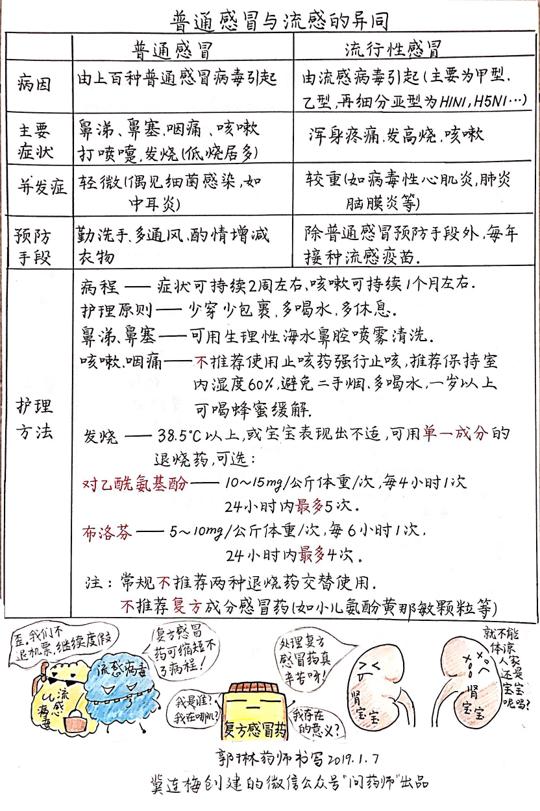 普通感冒与流感的异同
普通感冒
流行性感冒
病因
由上百种普通感冒病毒引起
由流感病毒引起(主要为甲型,
乙型,再细分亚型为H1N1,H5N1…)
主要
症状
鼻涕、鼻塞、咽痛、咳嗽
打喷嚏,发烧(低烧居多)
浑身疼痛,发高烧,咳嗽
并发症
轻微(偶见细菌感染,如
中耳炎)
较重(如病毒性心肌炎,肺炎
脑膜炎等)
预防
手段
勤洗手、多通风、酌情增减
衣物
除普通感冒预防手段外,每年
接种流感疫苗.
护理
方法
病程——症状可持续2周左右,咳嗽可持续1个月左右.
护理原则——少穿少包裹,多喝水,多休息.
鼻涕、鼻塞——可用生理性海水鼻腔喷雾清洗.
咳嗽、咽痛——不推荐使用止咳药强行止咳,推荐保持室
内湿度60%,避免二手烟、多喝水,一岁以上
可喝蜂蜜缓解.
发烧——38.5℃以上,或宝宝表现出不适,可用单一成分的
退烧药,可选:
对乙酰氨基酚——10~15mg/公斤体重/次,每4小时1次
24小时内最多5次.
布洛芬——5~10mg/公斤体重/次,每6小时1次,
24小时内最多4次.
注:常规不推荐两种退烧药交替使用.
不推荐复方成分感冒药(如小儿氨酚黄那敏颗粒等)
歪,我们不
退机票,继续度假
流感
病毒
流感病毒
复方感冒
药可缩短不
了病程!
我是谁?
我在哪儿?
复方感冒药
我存在
的意义?
处理复方
感冒药真
辛苦呀!
肾
宝宝
肾
宝宝
就不能
体谅
人家
还是
宝宝
呢吗?
郭琳药师书写2019.1.7
冀连梅创建的微信公众号"问药师"出品